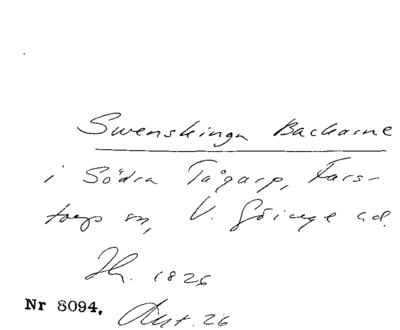 Swenskinga Backarne
i Södra Tågarp, Fars-
torps sn, V. Göinge hd.
Jh. 1826
Nr 8094, Ant. 26